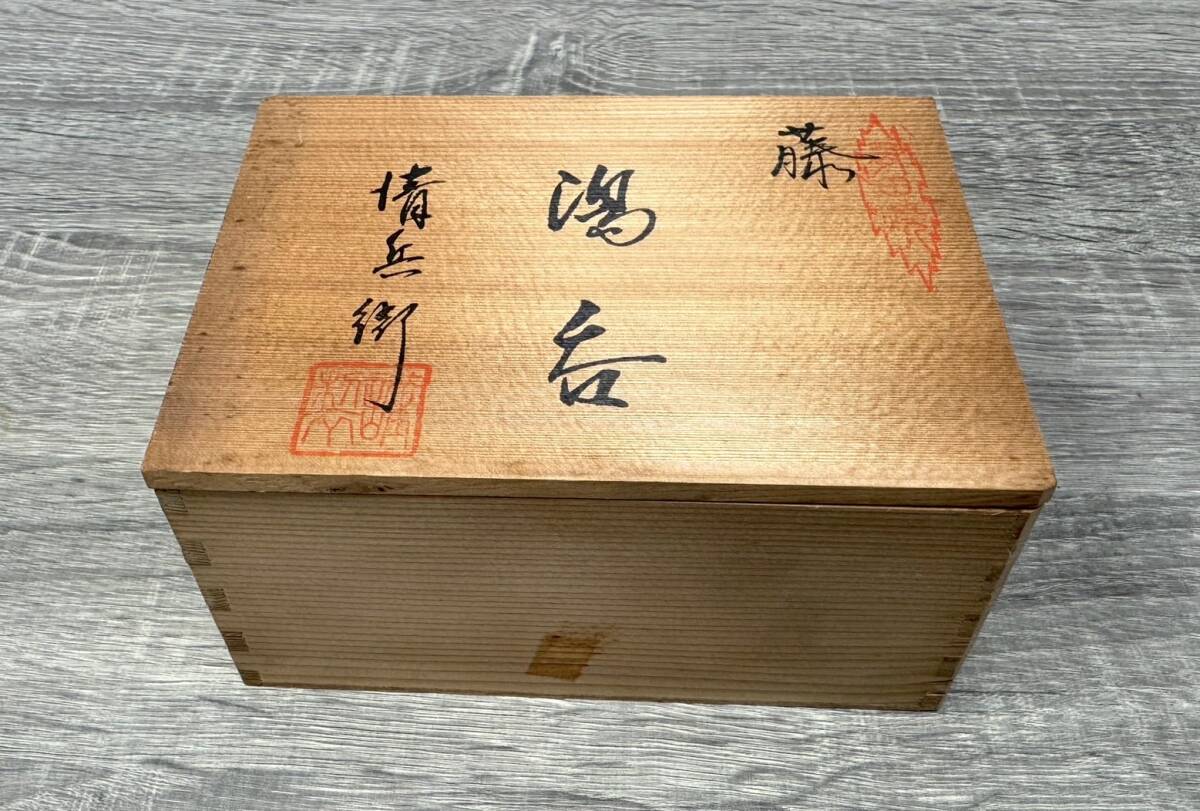 藤
湯呑
清兵衛